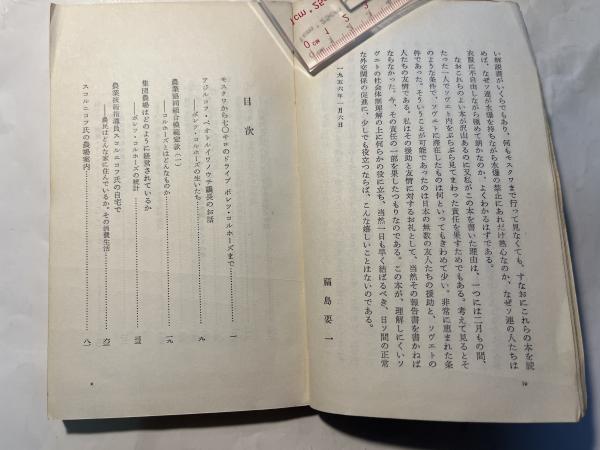 い解説書がいくらでもあり、何もモスクワまで行って見なくても、すなおにこれらの本を読
めば、なぜソ連が水爆を持ちながら水爆の禁止にあれだけ熱心なのか、なぜソ連の人たちは
衣服に不自由しながら極めて朗かなのか、よくわかるはずである。
なおこれらのよい本が沢山あるのに又私がこの本を書いた理由は、一つには二月もの間、
たった一人でソヴェト内をぶらぶら見てまわった責任を果すためでもある。考えて見るとそ
のような条件で、ソヴェトに滞在したものは何といってもきわめて少い。非常に恵まれた条
件であった。そういうことが可能であったのは日本の無数の友人たちの援助と、ソヴェトの
人たちの友情である。私はその援助と友情に対するお礼として、当然その報告書を書かねば
ならなかった。今、その責任の一部を果したつもりなのである。この本が、理解しにくいソ
ヴェトの社会体制理解の上に何らかの役に立ち、当然一日も早く結ばるべき、日ソ間の正常
な外交関係の促進に、少しでも役立つならば、こんな嬉しいことはないのである。
一九五六年一月六日
福島要一
目次
モスクワから七〇キロのドライブ ボレツ・コルホーズまで……一
——ボレツ・コルホーズの生いたち
アジルコフ・ペオトル・イワノウッチ議長のお話……九
農業協同組合模範定款(一)……一九
——コルホーズとはどんなものか
集団農場はどのように経営されているか
——ボレツ・コルホーズの統計
農業技術指導員スコルニコフ氏の自宅で
——農民はどんな家に住んでいるか。その消費生活……六三
スコルニコフ氏の農場案内……八一